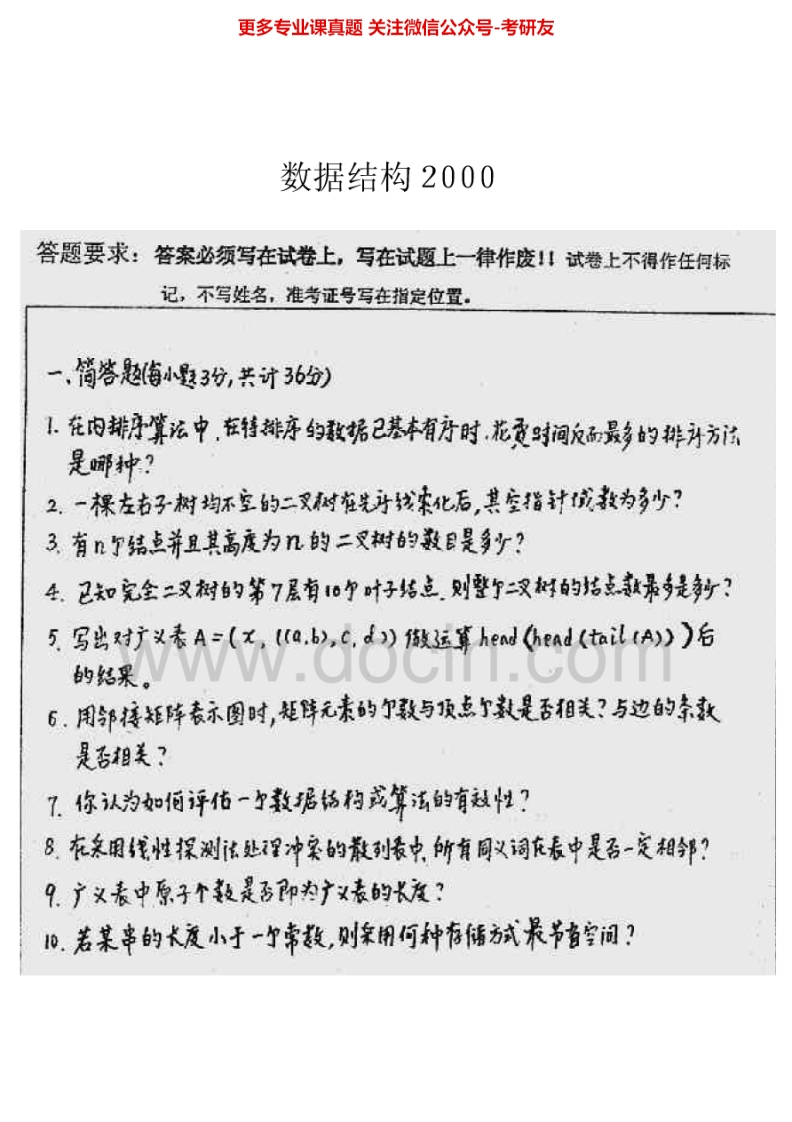 更多专业课真题 关注微信公众号-考研友
数据结构 2000
答题要求：答案必须写在试卷上，写在试题上一律作废!! 试卷上不得作任何标
记，不写姓名，准考证号写在指定位置。
一、简答题(每小题3分,共计36分)
1. 在内排序算法中,在待排序的数据已基本有序时,花费时间反而最多的排序方法
是哪种?
2. 一棵左右子树均不空的二叉树在先序线索化后,其空指针域数为多少?
3. 有n个结点并且其高度为n的二叉树的数目是多少?
4. 已知完全二叉树的第7层有10个叶子结点,则整个二叉树的结点数最多是多少?
5. 写出对广义表A=(x, ((a,b),c,d)) 做运算head(head(tail(A)))后
的结果。
www.docin.com
6. 用邻接矩阵表示图时,矩阵元素的个数与顶点个数是否相关?与边的条数
是否相关?
7. 你认为如何评估一个数据结构或算法的有效性?
8. 在采用线性探测法处理冲突的散列表中,所有同义词在表中是否一定相邻?
9. 广义表中原子个数是否即为广义表的长度?
10. 若某串的长度小于一个常数,则采用何种存储方式最节省空间?